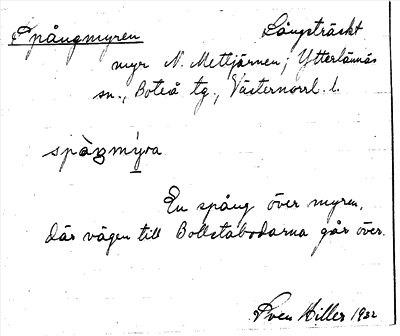 Spångmyren Långsträckt
myr N. Metljärnen; Ytterlännäs
sn., Boteå tg., Västernorrl. l.
spàŋmýra
En spång över myren,
där vägen till Bollstabodarna går över.
Sven Hiller 1932